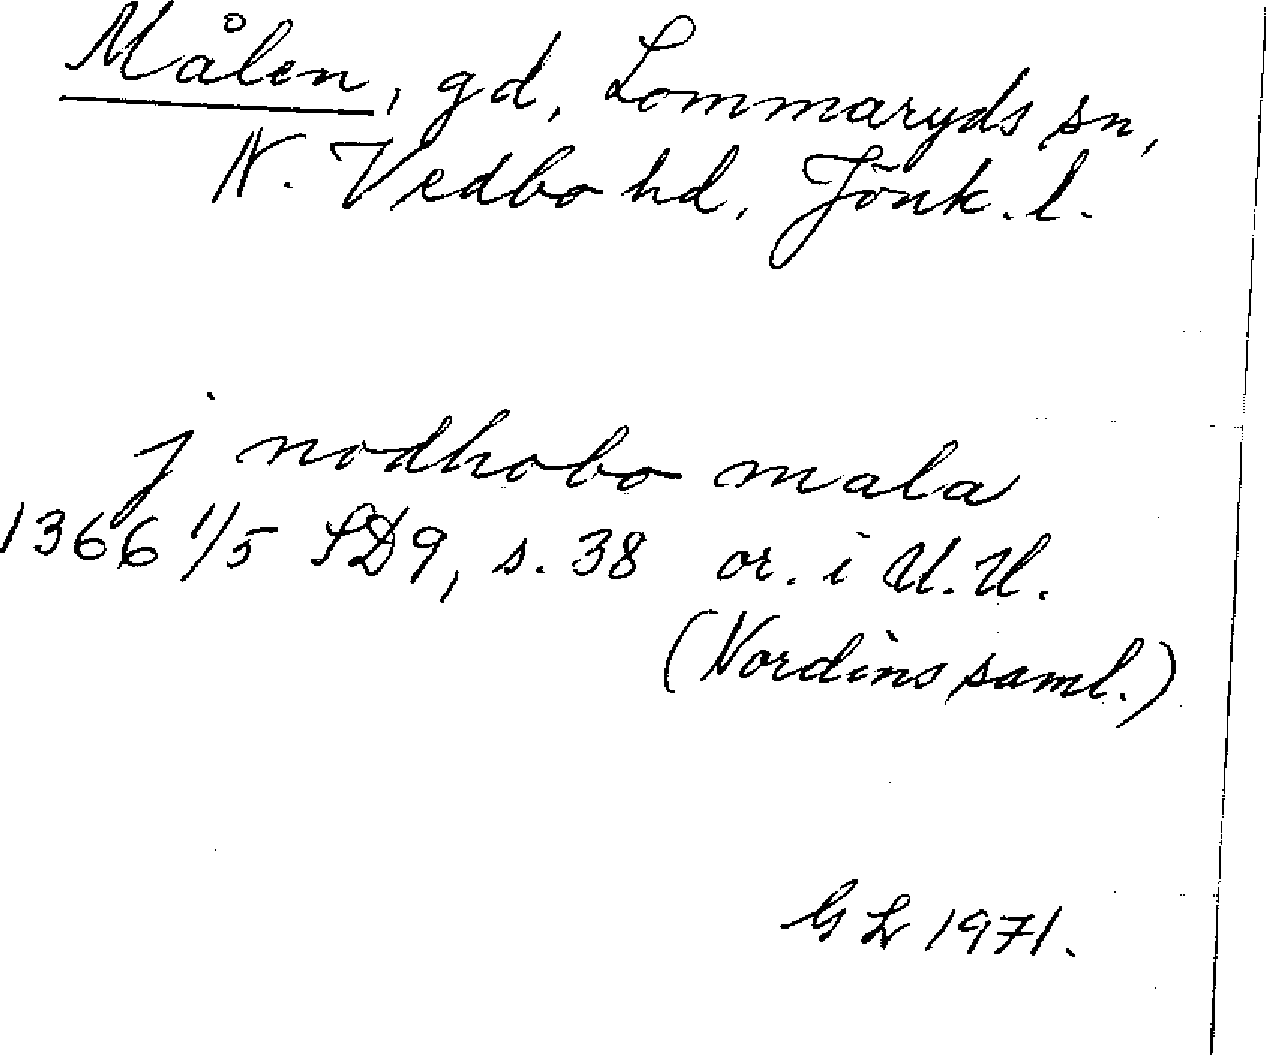 Målen, gd, Lommaryds sn,
N. Vedbo hd, Jönk. l.
j nodhobo mala
1366 1/5 SD9, s. 38 or. i U.U.
(Nordins saml.)
GL 1971.